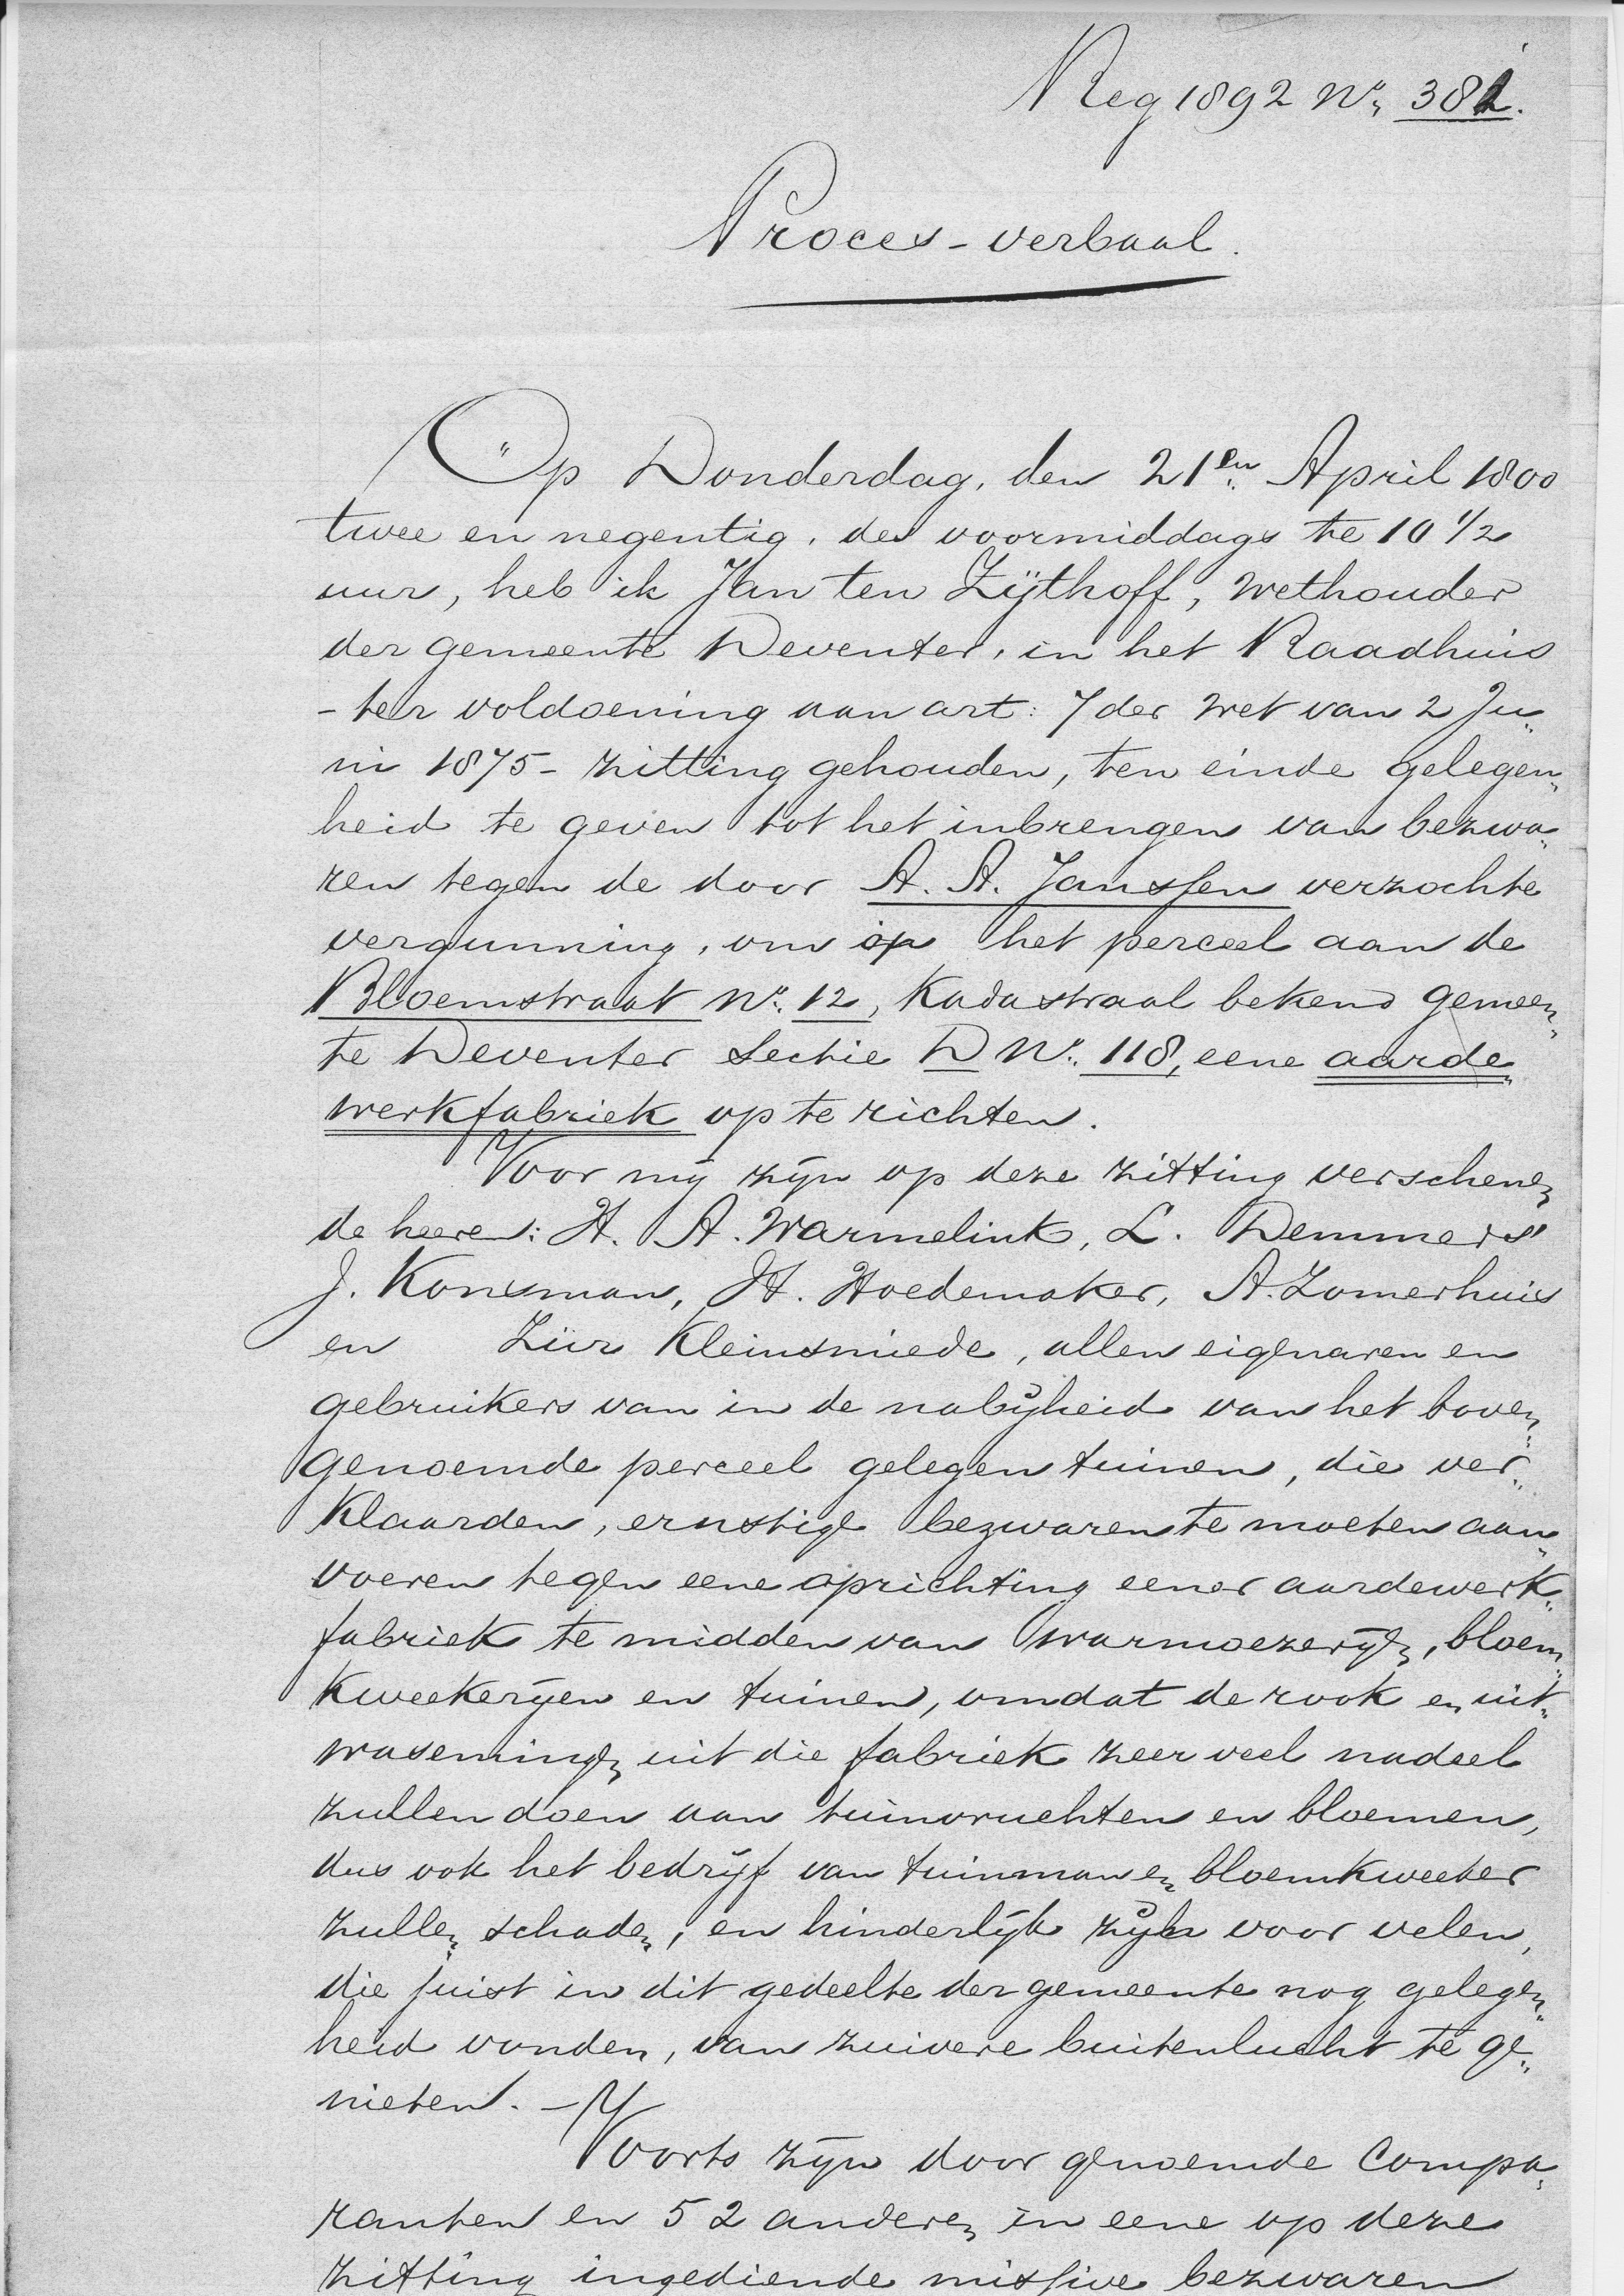 Reg 1892 No. 381.
Proces-verbaal.
Op Donderdag, den 21en April 1800
twee en negentig, des voormiddags te 10 1/2
uur, heb ik Jan ten Zijthoff, Wethouder
der gemeente Deventer, in het Raadhuis
- ter voldoening aan art: 7 der Wet van 2 Ju„
ni 1875 - zitting gehouden, ten einde gelegen„
heid te geven tot het inbrengen van bezwa„
ren tegen de door A. A. Janssen verzochte
vergunning, om op het perceel aan de
Bloemstraat No. 12, Kadastraal bekend gemeen„
te Deventer Sectie D No. 118, eene aarde„
werkfabriek op te richten.
Voor mij zijn op deze zitting verschenen
de heeren: H. A. Warmelink, L. Demmers
J. Konsman, H. Hoedemaker, A. Zomerhuis
en Zür Kleinsmiede, allen eigenaren en
gebruikers van in de nabijheid van het boven„
genoemde perceel gelegen tuinen, die ver„
klaarden, ernstige bezwaren te moeten aan„
voeren tegen eene oprichting eener aardewerk„
fabriek te midden van warmoezerijen, bloem„
kweekerijen en tuinen, omdat de rook en uit„
wasemingen uit die fabriek zeer veel nadeel
zullen doen aan tuinvruchten en bloemen,
dus ook het bedrijf van tuinman en bloemkweeker
zullen schaden, en hinderlijk zijn voor velen,
die juist in dit gedeelte der gemeente nog gelegen„
heid vonden, van zuivere buitenlucht te ge„
nieten. -
Voorts zijn door genoemde Compa„
ranten en 52 anderen in eene op deze
zitting ingediende missive bezwaren